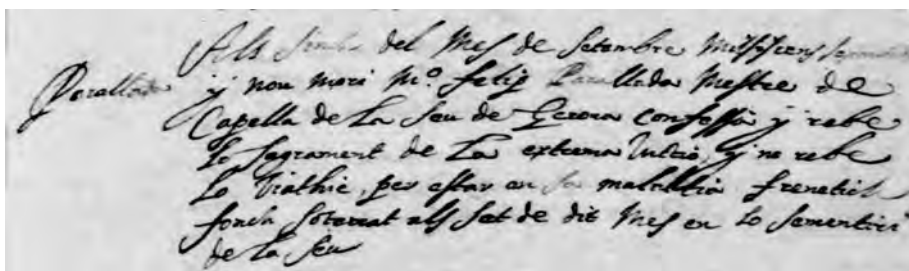 Perallada
Als sinch del Mes de Setembre Mil siscens sexanta
y nou morí Mº. Felip Parallada Mestre de
Capella de La Seu de Gerona confessà y rebe
Lo Sagrament de La extrema Unctio, y no rebe
Lo Viathic, per estar en sa malaltia frenetich
fonch soterrat als set de dit Mes en Lo Sementiri
de La Seu